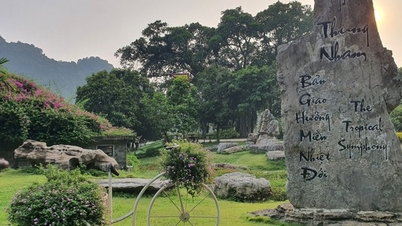 Thung
Nham
Bản
Giao
Hưởng
Miền
Nhiệt
Đới
The
Tropical
Symphony